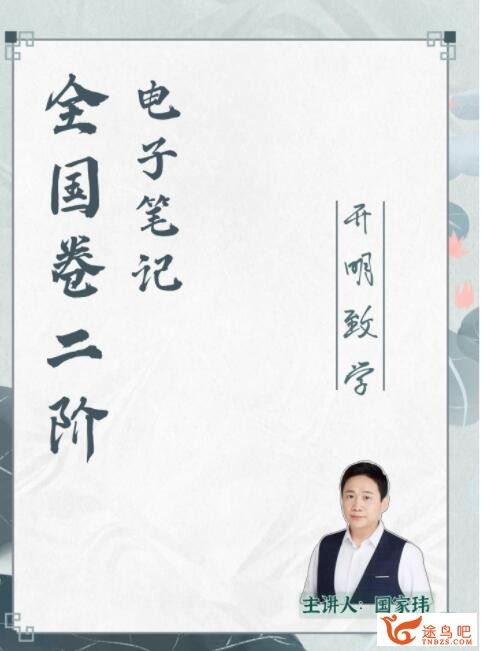 全国卷二阶
电子笔记
开明致学
主讲人：国家玮
途鸟吧
TNBZS.COM